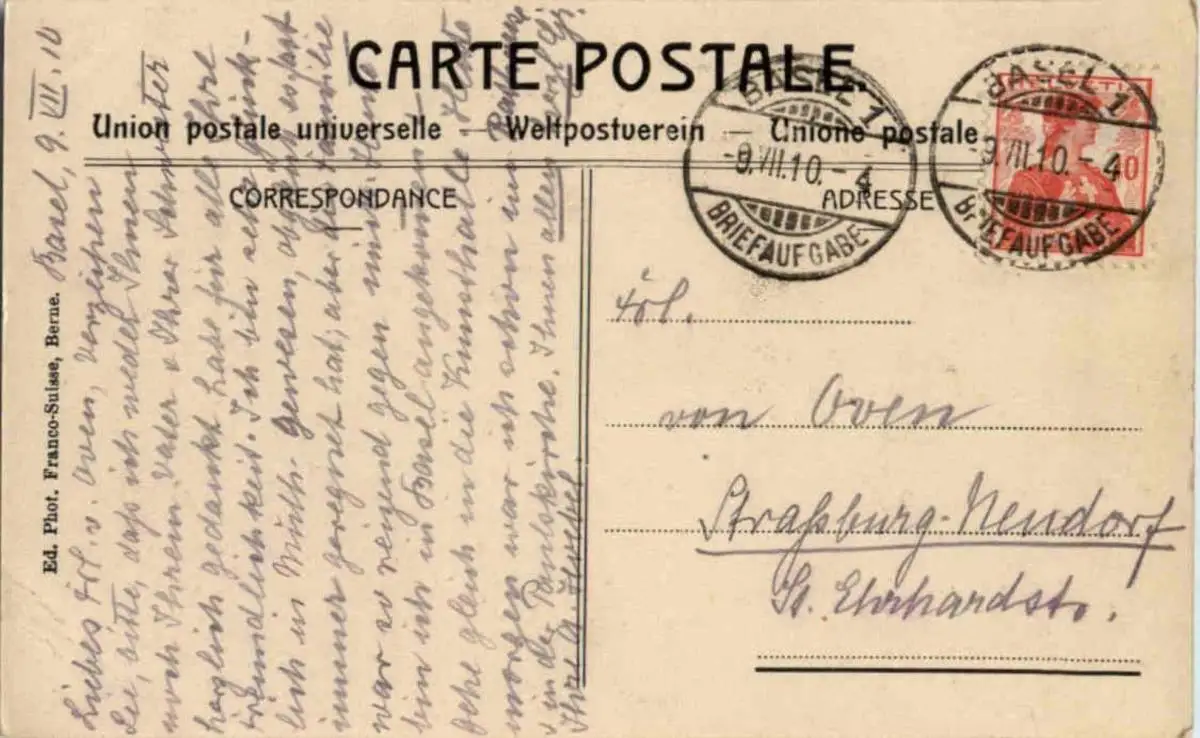 CARTE POSTALE.
Union postale universelle — Weltpostverein — Unione postale
CORRESPONDANCE
ADRESSE
BASEL 1
-9.VII.10.-4
BRIEFAUFGABE
BASEL 1
-9.VII.10.-4
BRIEFAUFGABE
10
Frl.
von Oven
Straßburg-Neudorf
St. Ehrhardstr.
Ed. Phot. Franco-Suisse, Berne.
Basel, 9. VII. 10
Liebes Frl. v. Oven, verzeihen
Sie, bitte, daß ich weder Ihnen
noch Ihrem Vater u Ihrer Schwester
herzlich gedankt habe für alle Ihre
Freundlichkeit. Ich bin sehr glück-
lich in Mülh. gewesen, obgleich es fast
immer geregnet hat, aber die Familie
war so reizend gegen mich. Heute
bin ich in Basel angekommen u
gehe gleich in die Kunsthalle. Heute
morgen war ich schon im
u in der Paulskirche. Ihnen allen herzl. Gr.
Ihre